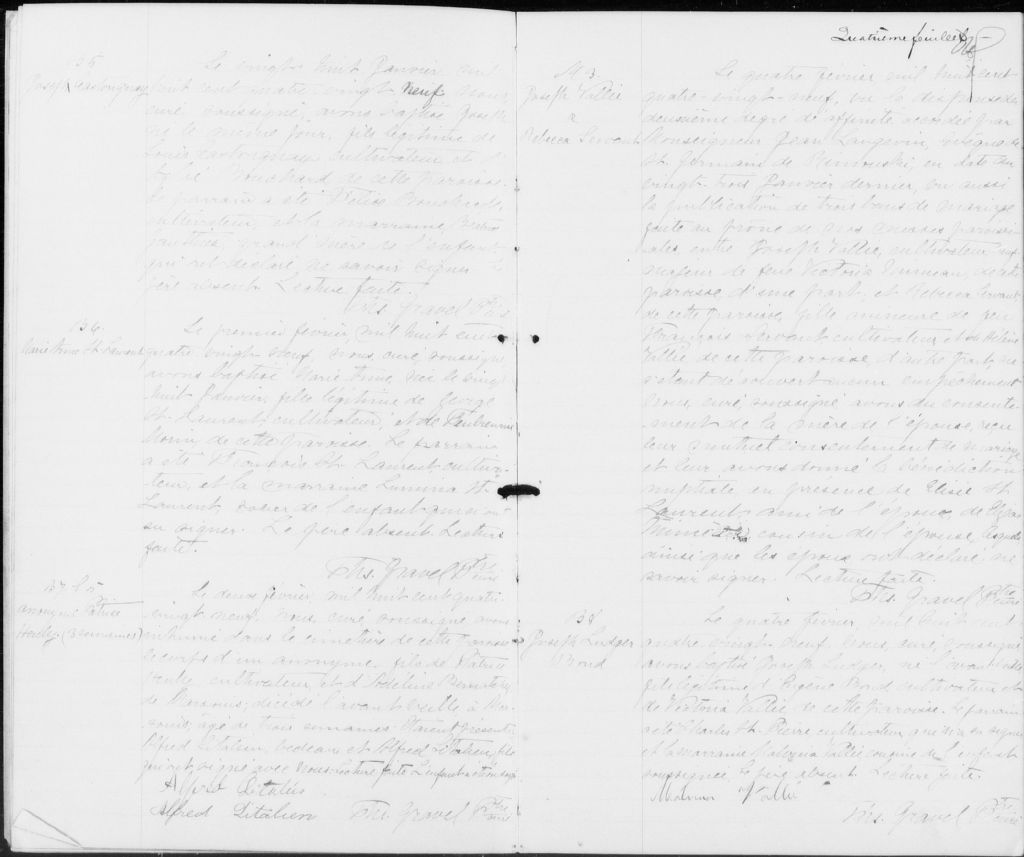 B5
Joseph Castonguay
Le vingt huit Janvier mil
huit cent quatre-vingt neuf nous
curé soussigné, avons baptisé Joseph
né le même jour, fils légitime de
Louis Castonguay cultivateur et
Bouchard de cette paroisse.
Le parrain a été Elisé Bouchard,
cultivateur, et la marraine
grand mère de l'enfant
qui ont déclaré ne savoir signer
père absent. Lecture faite.
Ths. Gravel Ptre
B6
Marie Anne St. Laurent
Le premier février, mil huit cent
quatre vingt neuf, nous, curé soussigné
avons baptisé Marie Anne, née le vingt
huit Janvier, fille légitime de George
St. Laurent, cultivateur, et de
Morin de cette paroisse. Le parrain
a été François St. Laurent, cultiva-
teur, et la marraine Lumina St.
Laurent, soeur de l'enfant qui n'ont
su signer. Le père absent. Lecture
faite.
Ths. Gravel Ptre Curé
Anonyme
(3 semaines)
Le deux février mil huit cent quatre
vingt neuf, nous curé soussigné avons
inhumé dans le cimetière de cette paroisse
le corps d'un anonyme, fils de
cultivateur, et d'Adeline
décédé l'avant veille à
âgé de trois semaines. Etaient présents
Alfred Litalien, bedeau et Alfred Litalien, fils
qui ont signé avec nous. Lecture faite.
Alfred Litalien
Alfred Litalien Ths. Gravel Ptre Curé
Quatrième feuillet
M 3
Joseph Vallée
&
Rebecca Servant
Le quatre février mil huit cent
quatre-vingt-neuf, vu la dispense du
deuxième degré de affinité accordée par
Monseigneur Jean Langevin, évêque de
St. Germain de Rimouski, en date du
vingt-trois Janvier dernier, vu aussi
la publication de trois bans de mariage
faite au prône de nos messes parois-
siales entre Joseph Vallée, cultivateur
majeur de feue Victoria de cette
paroisse, d'une part, et Rebecca Servant
de cette paroisse, fille mineure de feu
François Servant cultivateur et de Hélène
Vallée de cette paroisse, d'autre part, ne
s'étant découvert aucun empêchement
nous, curé, soussigné avons du consente-
ment de la mère de l'épouse, reçu
leur mutuel consentement de mariage
et leur avons donné la bénédiction
nuptiale en présence de Elisée St.
Laurent, ami de l'époux, de
cousin de l'épouse,
ainsi que les époux ont déclaré ne
savoir signer. Lecture faite.
Ths. Gravel Ptre Curé
B8
Joseph Ludger
Bond
Le quatre février, mil huit cent
quatre vingt neuf, nous, curé, soussigné
avons baptisé Joseph Ludger, né l'avant veille
fils légitime d'Eugène Bond cultivateur et
de Victoria Vallée de cette paroisse. Le parrain
a été Charles St. Pierre cultivateur, qui n'a su signer
et la marraine Malvina Vallée cousine de l'enfant
soussignée, le père absent. Lecture faite.
Malvina Vallée
Ths. Gravel Ptre Curé